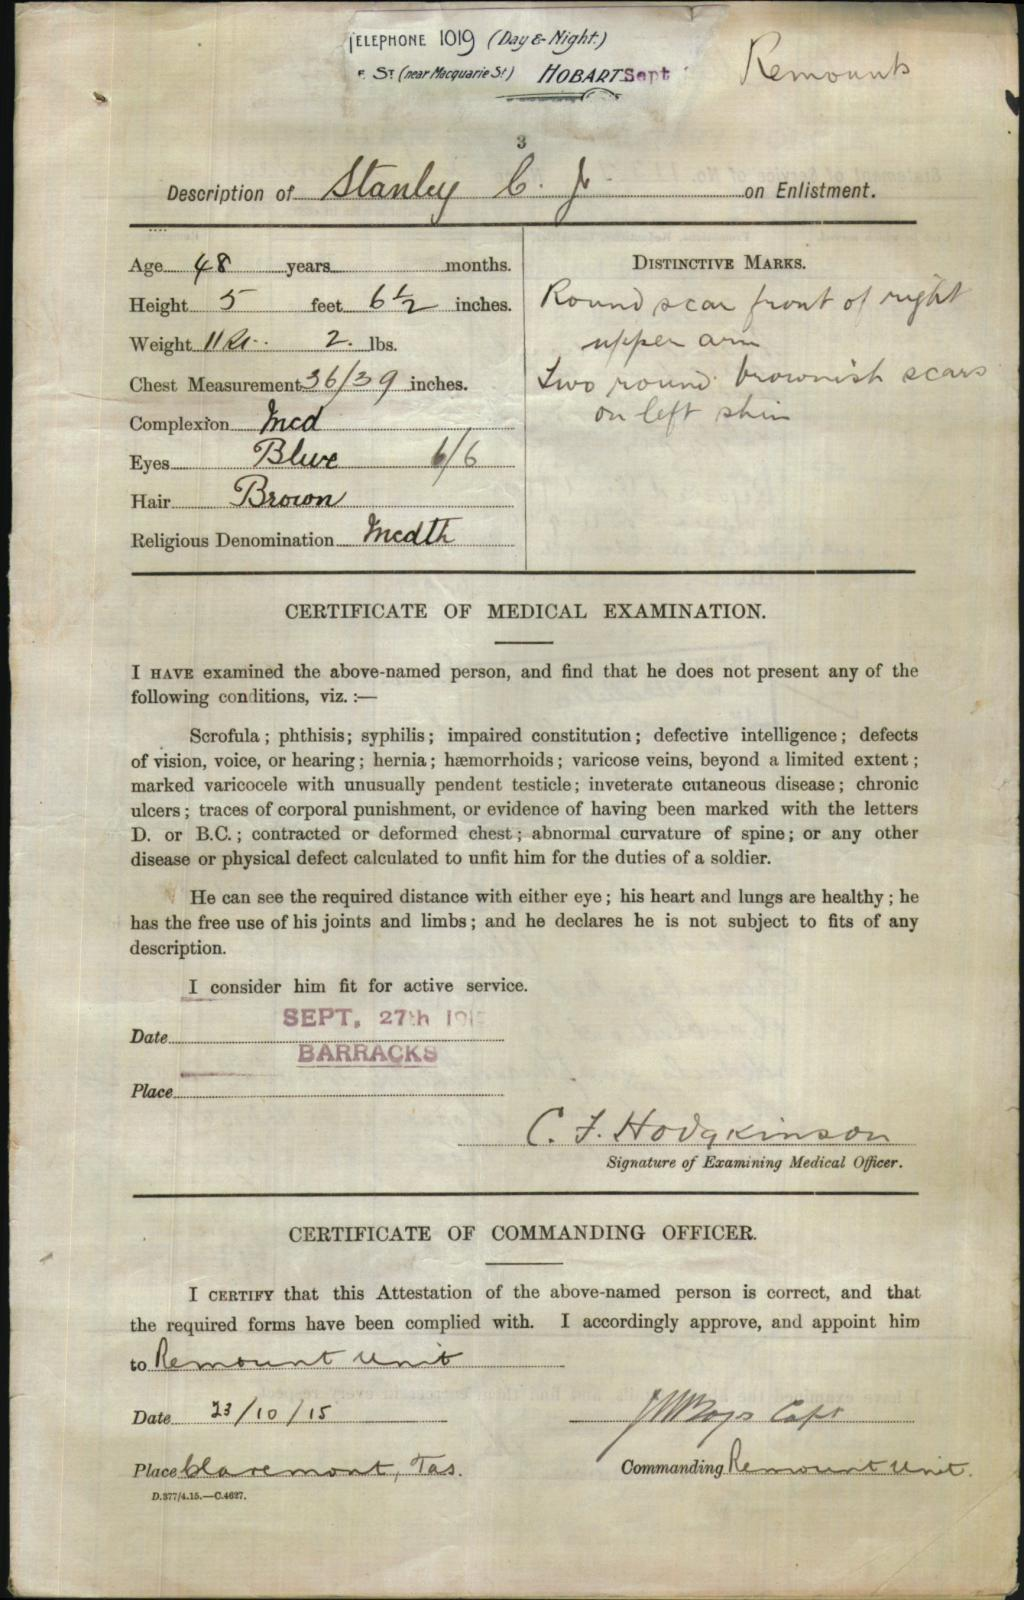 TELEPHONE 1019 (Day & Night.)
ST (near Macquarie St) HOBART Sept
Remounts
3
Description of Stanley C. J. on Enlistment.
Age 48 years months.
Height 5 feet 6½ inches.
Weight 11 2. lbs.
Chest Measurement 36/39 inches.
Complexion Med
Eyes Blue 6/6
Hair Brown
Religious Denomination Medth
DISTINCTIVE MARKS.
Round scar front of right
upper arm
Two round brownish scars
on left shin
CERTIFICATE OF MEDICAL EXAMINATION.
I HAVE examined the above-named person, and find that he does not present any of the
following conditions, viz. :—
Scrofula ; phthisis ; syphilis ; impaired constitution ; defective intelligence ; defects
of vision, voice, or hearing ; hernia ; hæmorrhoids ; varicose veins, beyond a limited extent ;
marked varicocele with unusually pendent testicle ; inveterate cutaneous disease ; chronic
ulcers ; traces of corporal punishment, or evidence of having been marked with the letters
D. or B.C. ; contracted or deformed chest ; abnormal curvature of spine ; or any other
disease or physical defect calculated to unfit him for the duties of a soldier.
He can see the required distance with either eye ; his heart and lungs are healthy ; he
has the free use of his joints and limbs ; and he declares he is not subject to fits of any
description.
I consider him fit for active service.
Date SEPT. 27th
BARRACKS
Place
C. F. Hodgkinson
Signature of Examining Medical Officer.
CERTIFICATE OF COMMANDING OFFICER.
I CERTIFY that this Attestation of the above-named person is correct, and that
the required forms have been complied with. I accordingly approve, and appoint him
to Remount Unit
Date 23/10/15 Capt
Place Claremont, Tas. Commanding Remount Unit.
D.377/4.15.—C.4627.